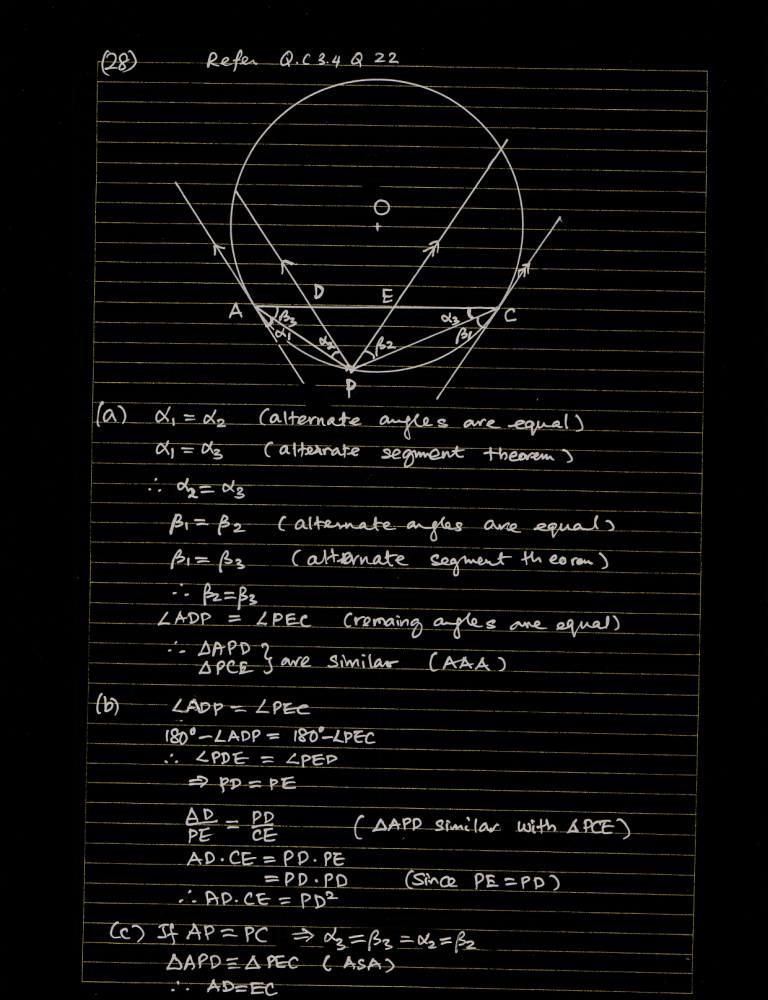 (28) Refer Q.C 3.4 Q 22
O
D E
A β₃ α₃ C
α₁ α₂ β₂ β₁
P
(a) α₁ = α₂ (alternate angles are equal)
α₁ = α₃ (alternate segment theorem)
∴ α₂ = α₃
β₁ = β₂ (alternate angles are equal)
β₁ = β₃ (alternate segment theorem)
∴ β₂ = β₃
∠ADP = ∠PEC (remaing angles are equal)
∴ ΔAPD }
ΔPCE } are similar (AAA)
(b) ∠ADP = ∠PEC
180° - ∠ADP = 180° - ∠PEC
∴ ∠PDE = ∠PED
⇒ PD = PE
AD/PE = PD/CE (ΔAPD similar with ΔPCE)
AD·CE = PD·PE
= PD·PD (Since PE = PD)
∴ AD·CE = PD²
(c) If AP = PC ⇒ α₃ = β₃ = α₂ = β₂
ΔAPD ≡ ΔPEC (ASA)
∴ AD = EC